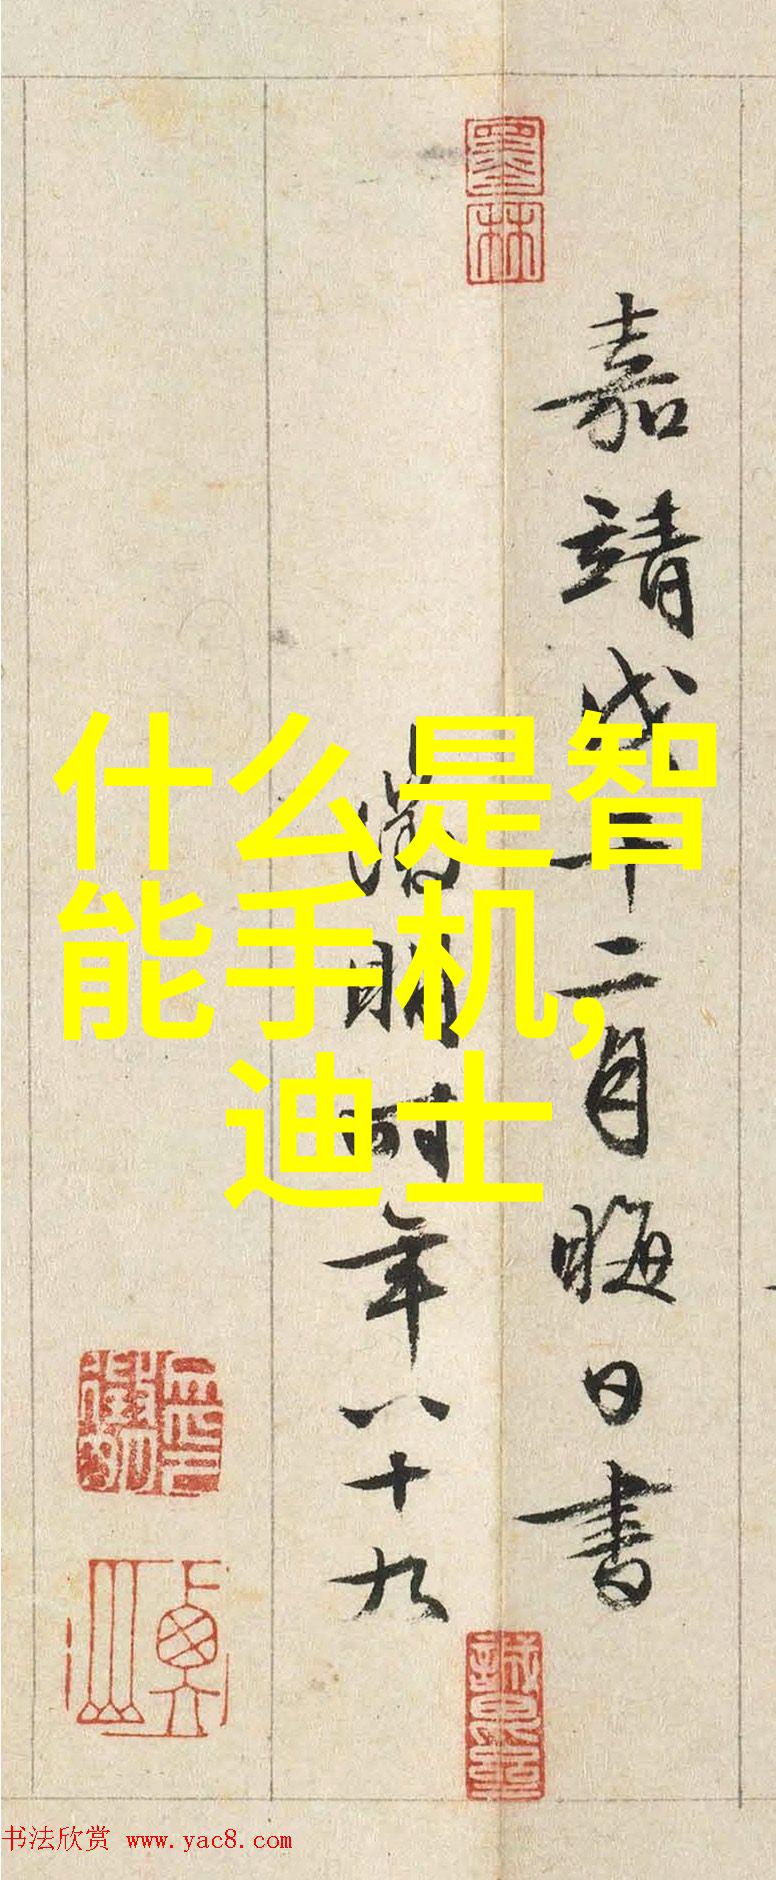 什么是智
能手机,
迪士
墨林
嘉靖戊午二月晦日書
徵明時年八十九
衡山
书法欣赏 www.yac8.com